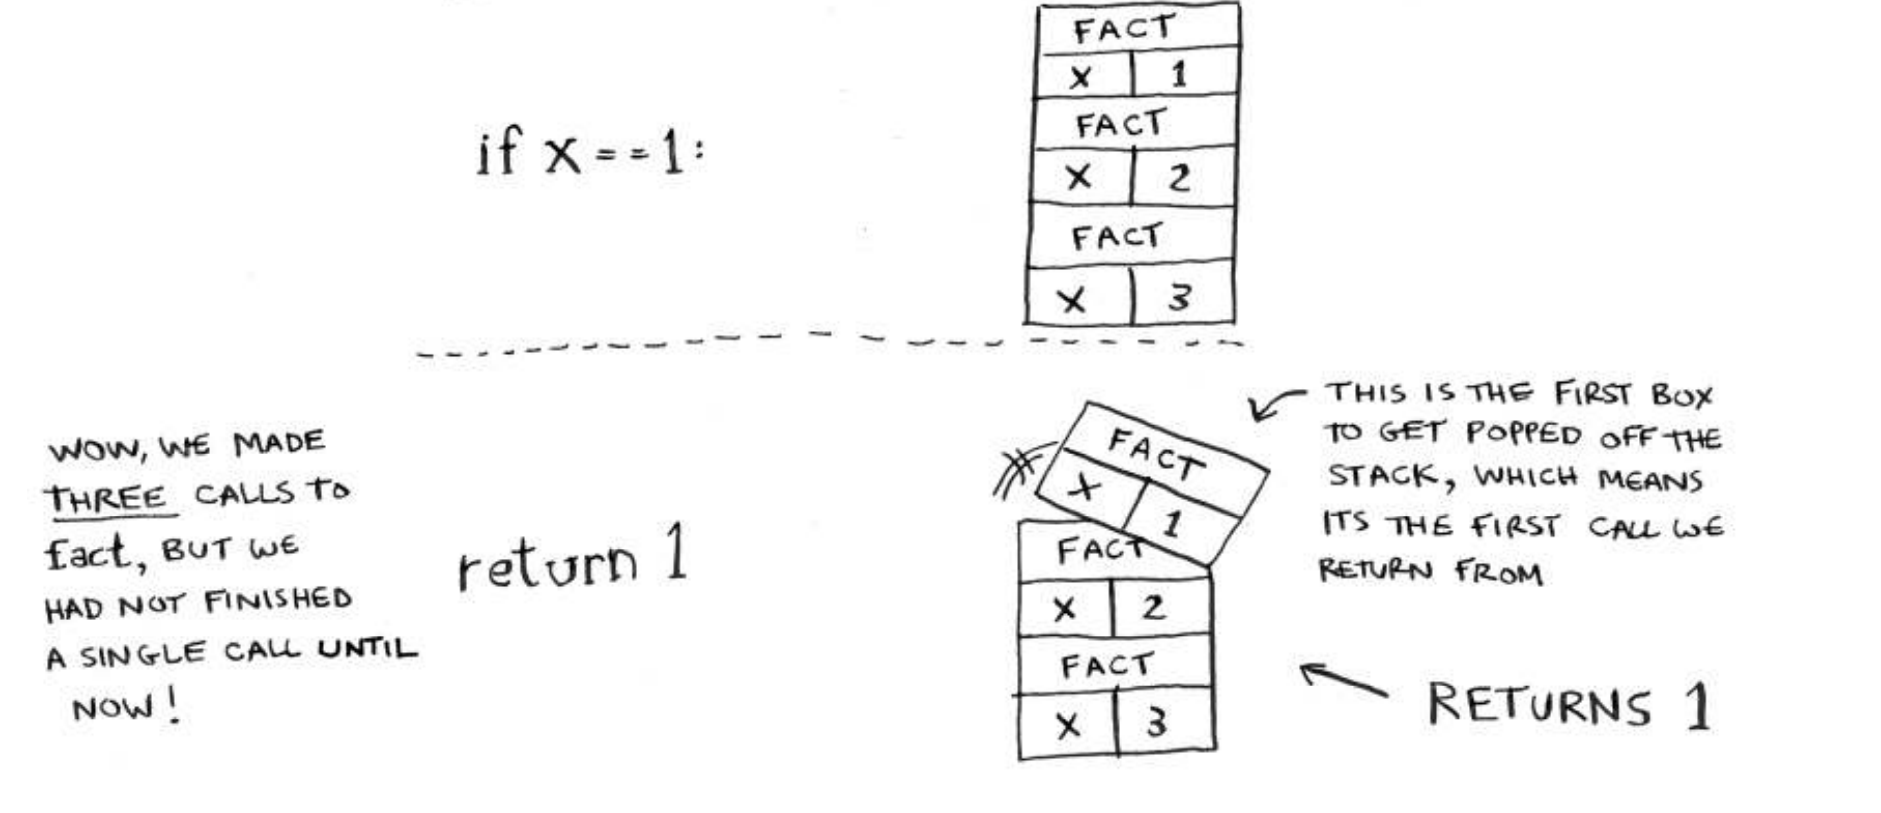 if x == 1:
FACT
X 1
FACT
X 2
FACT
X 3
WOW, WE MADE
THREE CALLS TO
fact, BUT WE
HAD NOT FINISHED
A SINGLE CALL UNTIL
NOW!
return 1
FACT
X 1
FACT
X 2
FACT
X 3
THIS IS THE FIRST BOX
TO GET POPPED OFF THE
STACK, WHICH MEANS
ITS THE FIRST CALL WE
RETURN FROM
RETURNS 1